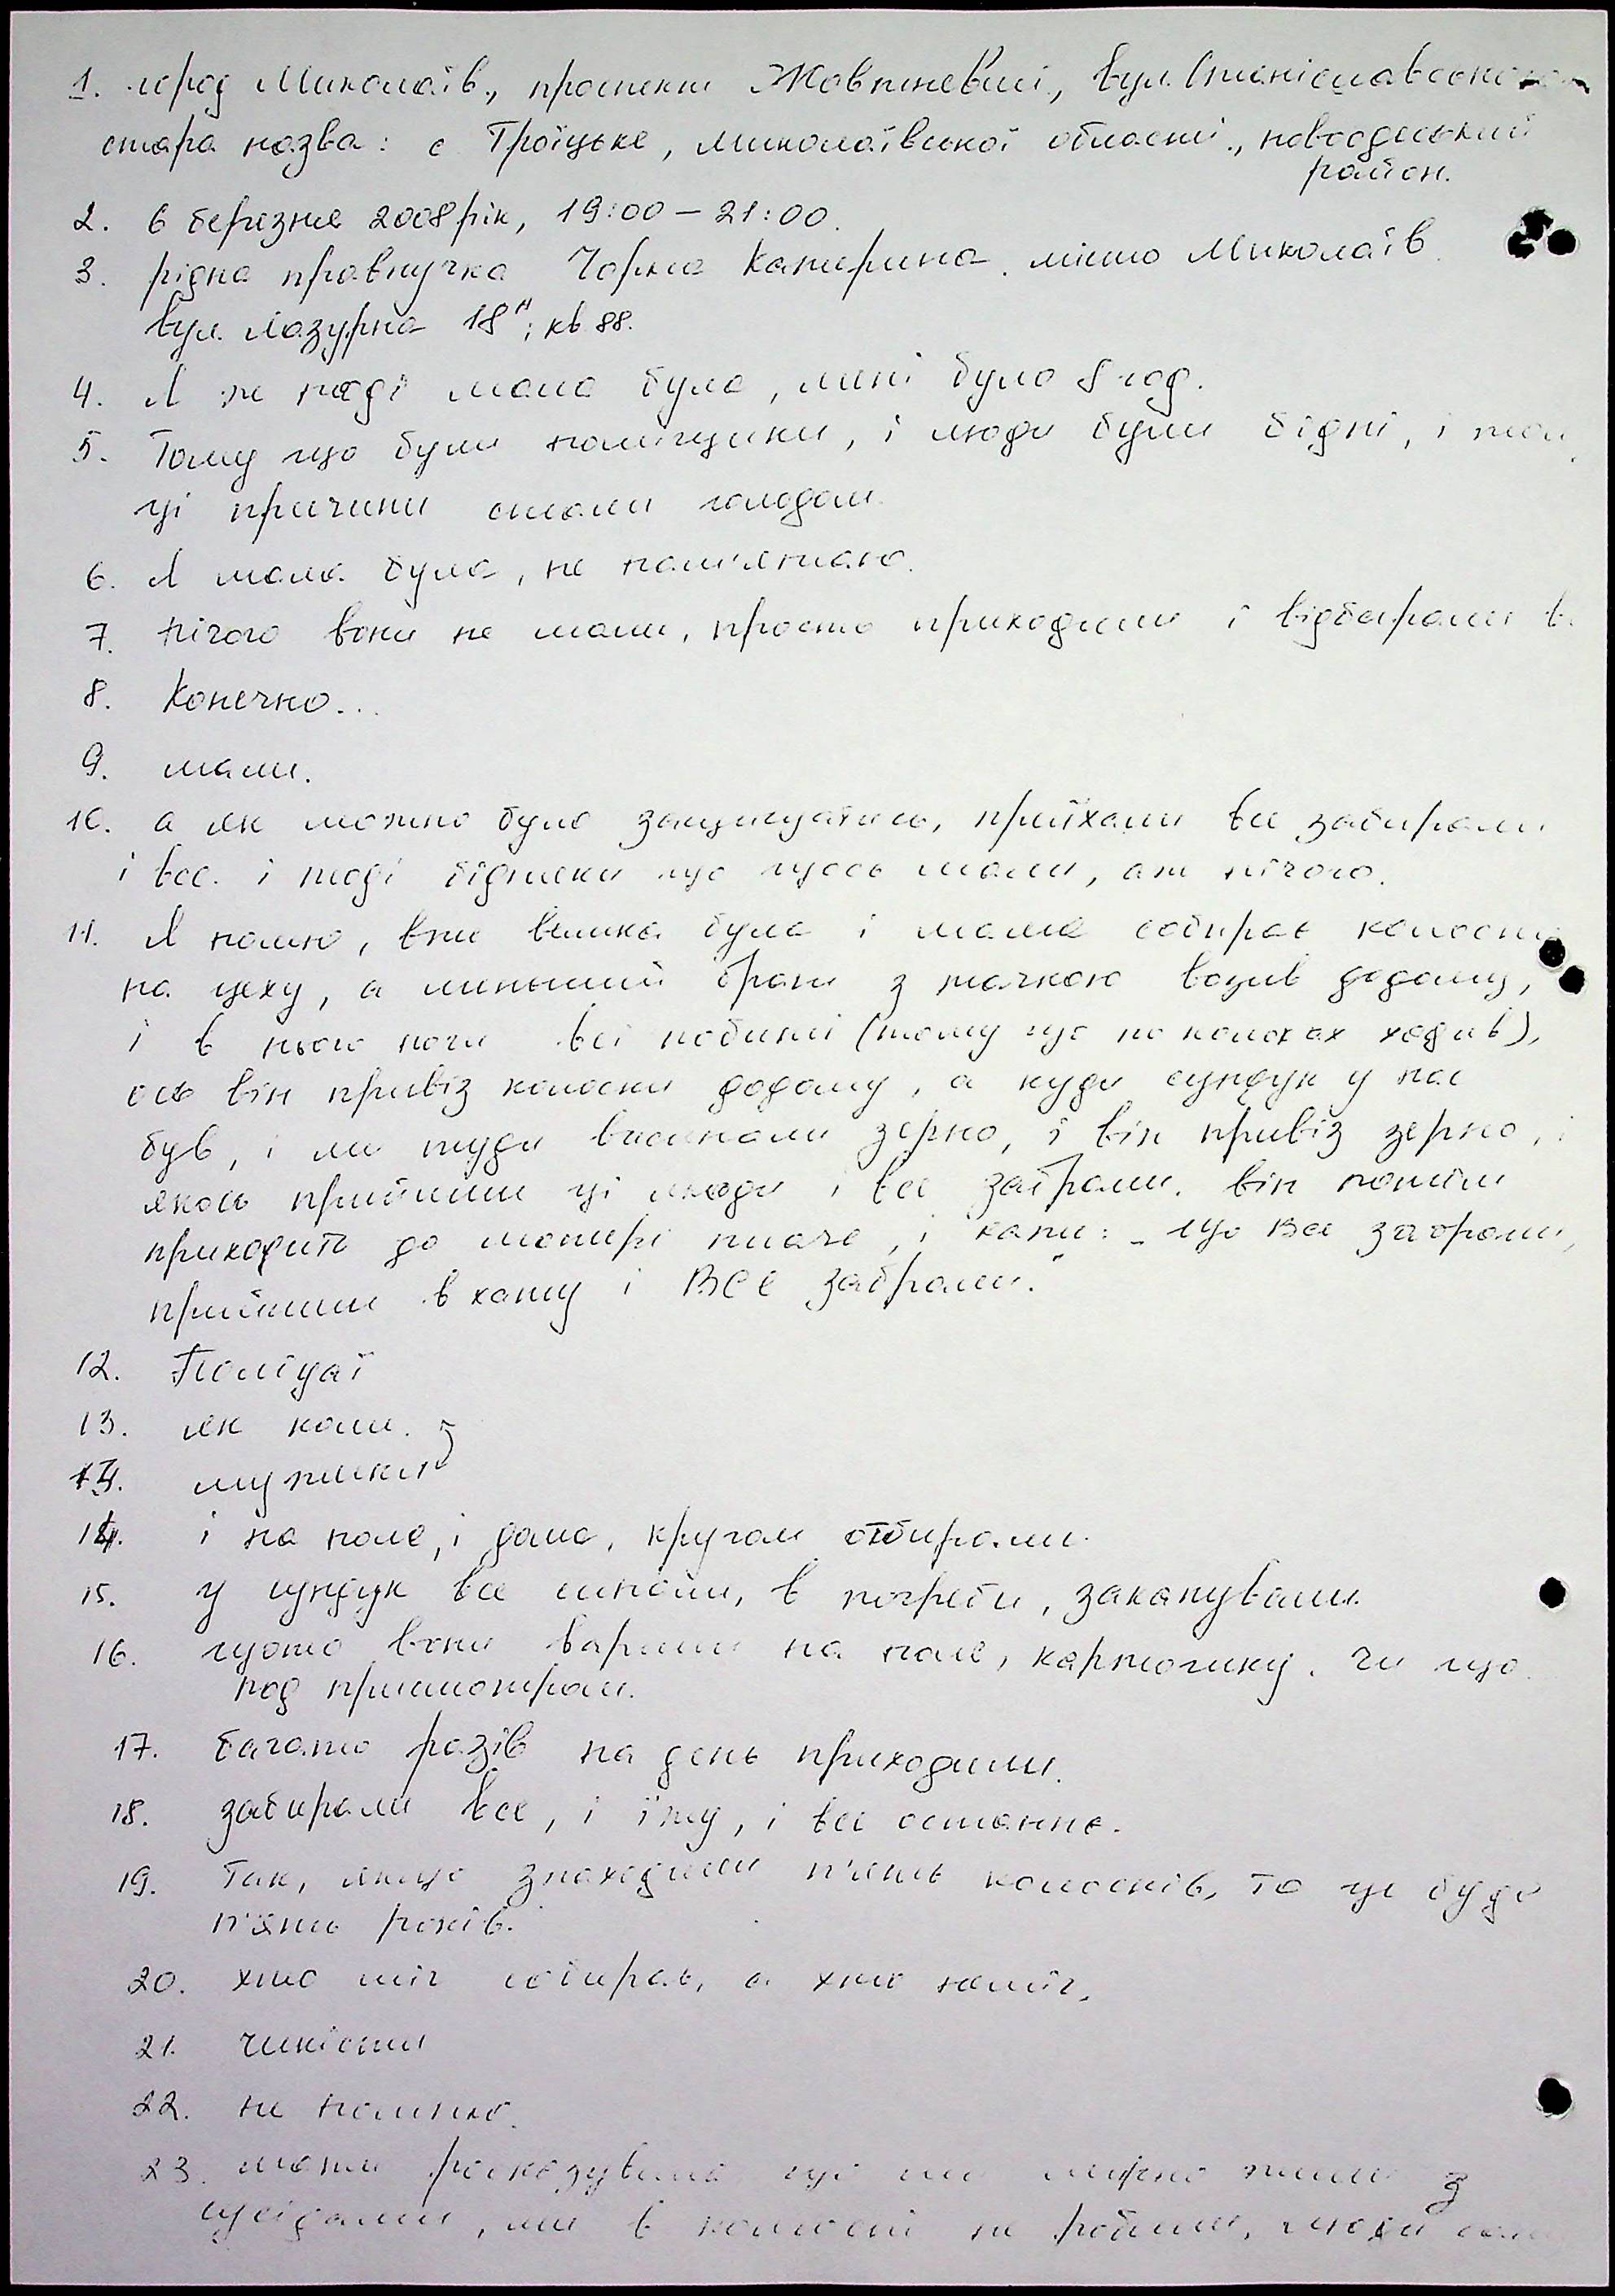 1. город Миколаїв., проспект Жовтневий, вул.
стара назва: с Троїцьке, Миколаївської області., новоодеський
район.
2. 6 березня 2008 рік, 19:00 – 21:00.
3. рідна правнучка Чорна Катерина. місто Миколаїв.
вул. Лазурна 18"; кв 88.
4. Я же тоді мала була, мені було 8 год.
5. Тому що були поміщики, і люди були бідні, і
ці причини стали голодом.
6. Я мала була, не пам'ятаю.
7. Нічого вони не мали, просто приходили і відбирали
8. Конечно...
9. мали.
10. а як можно було защищатись, приїхали все забирали
і все. і тоді бідняки що щось мали, аж нічого.
11. Я помню, вже велика була і мама собирає колоски
на цеху, а менший брат з тачкою возив додому,
і в нього ноги всі побиті (тому що по колках ходив),
ось він привіз колоски додому, а куди сундук у нас
був, і ми туди висипали зерно, і він привіз зерно, і
якось прийшли ці люди і все забрали. він потім
приходить до матері плаче, і каже: „що все забрали,
прийшли в хату і ВСЕ забрали."
12. Поліцаї
13. як коли.
13. мужики
14. і на поле, і дома, кругом отбирали.
15. у сундук все шпали, в погреби, закапували.
16. щото вони варили на поле, картошку. чи що.
под присмотром.
17. багато разів на день приходили.
18. забирали все, і їжу, і все остання.
19. Так, якщо знаходили п'ять колосків, то це буде
п'ять років.
20. хто міг собирав, а хто неміг.
21. чикісти
22. не помню.
23. мати росказувала що ми мирно жили з
сусідами, ми в колхозі не робили, люди